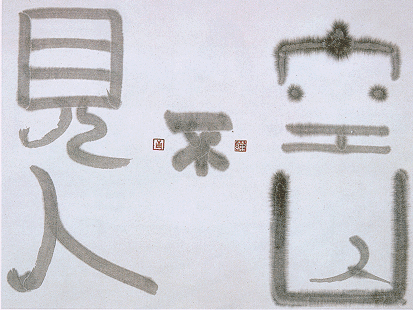 空山
不
見人